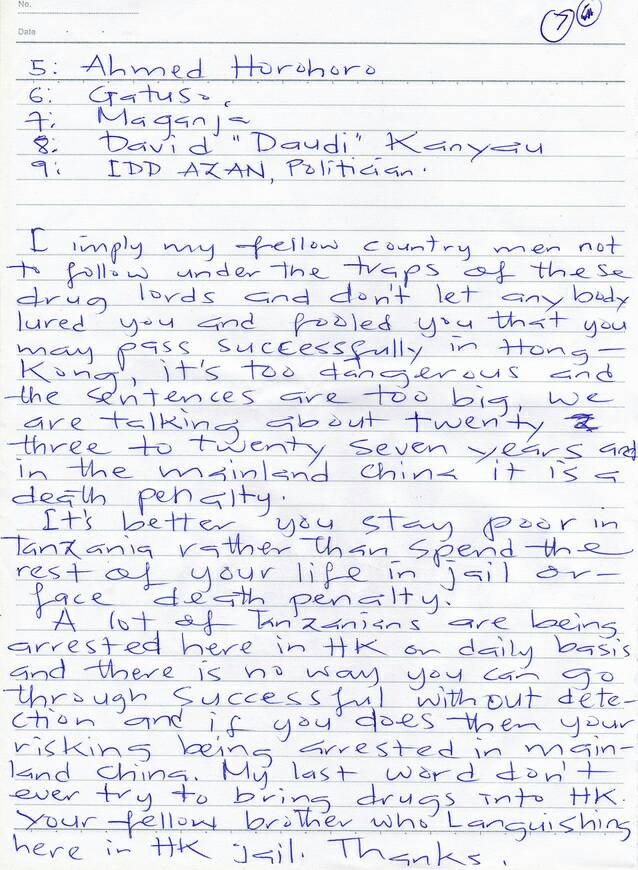 No.
7
Date
5: Ahmed Horohoro
6: Gatuso.
7: Maganja
8: David "Daudi" Kanyau
9: IDD AZAN, Politician.
I imply my fellow country men not
to follow under the traps of these
drug lords and don't let any body
lured you and fooled you that you
may pass successfully in Hong-
Kong, it's too dangerous and
the sentences are too big, we
are talking about twenty
three to twenty seven years and
in the mainland china it is a
death penalty.
It's better you stay poor in
Tanzania rather than spend the
rest of your life in jail or-
face death penalty.
A lot of Tanzanians are being
arrested here in HK on daily basis
and there is no way you can go
through Successful without dete-
ction and if you does then your
risking being arrested in main-
land China. My last word don't
ever try to bring drugs into HK.
Your fellow brother who Languishing
here in HK jail. Thanks.